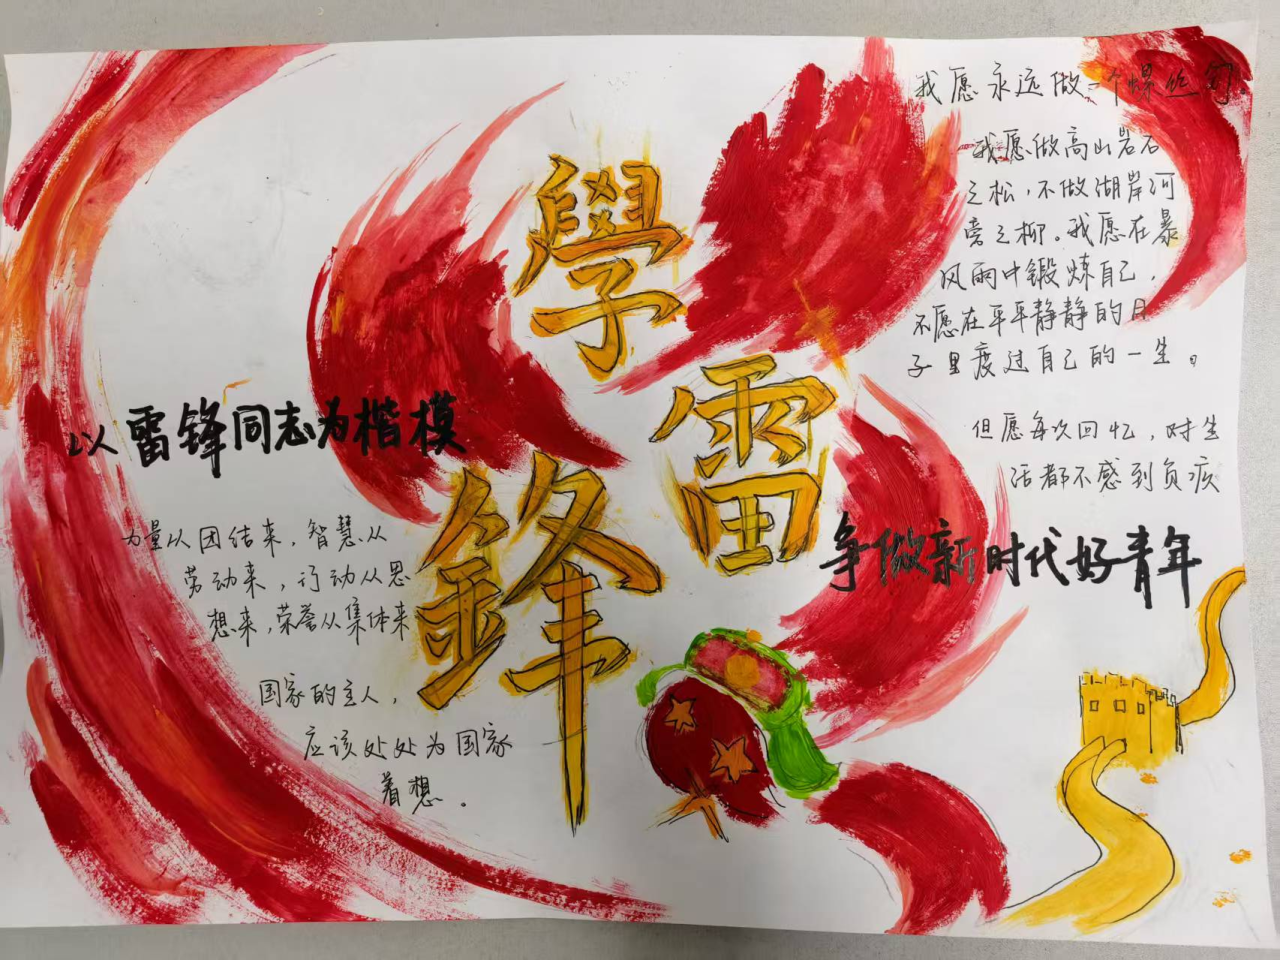 學
雷
鋒
以雷锋同志为楷模
力量从团结来，智慧从
劳动来，行动从思
想来，荣誉从集体来
国家的主人，
应该处处为国家
着想。
我愿永远做一个螺丝钉。
我愿做高山岩石
之松，不做湖岸河
旁之柳。我愿在暴
风雨中锻炼自己，
不愿在平平静静的日
子里度过自己的一生。
但愿每次回忆，对生
活都不感到负疚
争做新时代好青年